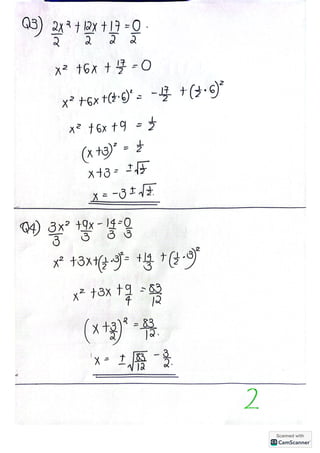 Q3) 2x²/2 + 12x/2 + 17/2 = 0/2.
x² + 6x + 17/2 = 0
x² + 6x + (½·6)² = -17/2 + (½·6)²
x² + 6x + 9 = ½
(x+3)² = ½
x+3 = ±√½
x = -3 ± √½.
Q4) 3x²/3 + 9x/3 - 14/3 = 0/3
x² + 3x + (½·3)² = +14/3 + (½·3)²
x² + 3x + 9/4 = 83/12
(x + 3/2)² = 83/12.
x = ±√83/12 - 3/2.
2
Scanned with
CS CamScanner